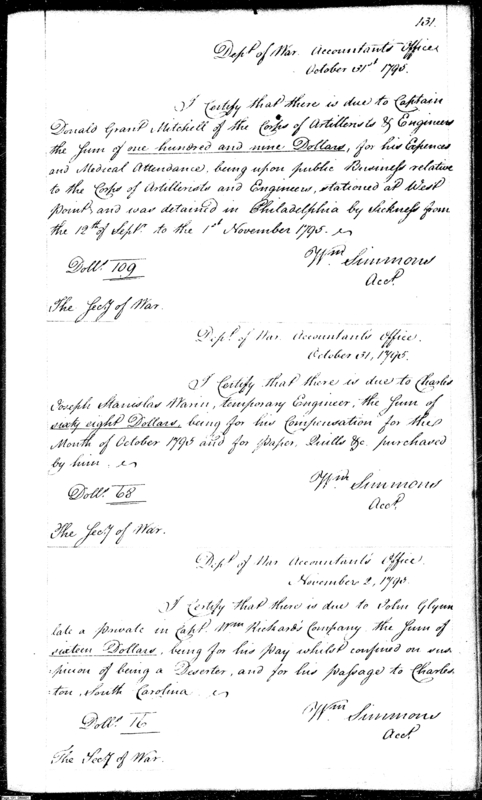 131.
Dept. of War. Accountant's Office
October 31st 1795.
I Certify that there is due to Captain
Donald Grant Mitchell of the Corps of Artillerists & Engineers
the Sum of one hundred and nine Dollars, for his Expences
and Medical Attendance, being upon public Business relative
to the Corps of Artillerists and Engineers, stationed at West
Point, and was detained in Philadelphia by Sickness from
the 12th of Septr. to the 1st November 1795.
Dolls. 109
Wm Simmons
Acct.
The Secy of War.
Dept. of War. Accountants Office.
October 31, 1795.
I Certify that there is due to Charles
Joseph Stanislas Warin, temporary Engineer, the Sum of
sixty eight Dollars, being for his Compensation for the
Month of October 1795 and for paper, Quills &c. purchased
by him.
Dolls. 68
Wm Simmons
Acct.
The Secy of War.
Dept. of War Accountant's Office.
November 2, 1795.
I Certify that there is due to John Glynn
late a private in Capt. Wm Richard's Company, the Sum of
sixteen Dollars, being for his pay whilst confined on sus
picion of being a Deserter, and for his passage to Charles
ton, South Carolina.
Dolls. 16
Wm Simmons
Acct.
The Secy of War.